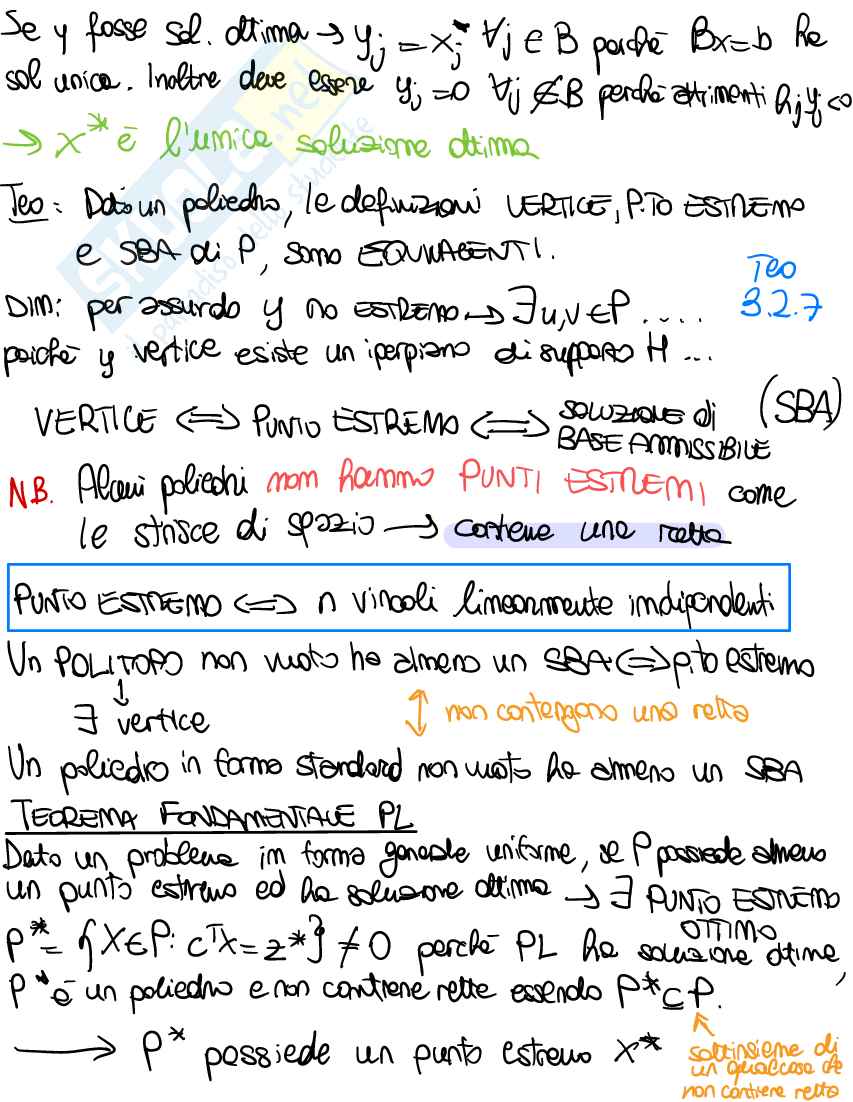 Se y fosse sol. ottima → yⱼ = xⱼ* ∀j ∈ B perchè Bx=b ha
sol unica. Inoltre deve essere yⱼ=0 ∀j ∉ B perchè altrimenti hⱼyⱼ<0
→ x* è l'unica soluzione ottima
Teo: Dato un poliedro, le definizioni VERTICE, P.TO ESTREMO
e SBA di P, sono EQUIVALENTI.
Teo
3.2.7
DIM: per assurdo y no ESTREMO → ∃ u,v ∈ P ....
poichè y vertice esiste un iperpiano di supporto H ...
VERTICE ⟺ PUNTO ESTREMO ⟺ SOLUZIONE di BASE AMMISSIBILE (SBA)
N.B. Alcuni poliedri non hanno PUNTI ESTREMI come
le strisce di spazio → contiene una retta
PUNTO ESTREMO ⟺ n vincoli linearmente indipendenti
Un POLITOPO non vuoto ha almeno un SBA ⟺ p.to estremo
↓
∃ vertice ↕ non contengono una retta
Un poliedro in forma standard non vuoto ha almeno un SBA
TEOREMA FONDAMENTALE PL
Dato un problema in forma generale uniforme, se P possiede almeno
un punto estremo ed ha soluzione ottima → ∃ PUNTO ESTREMO
OTTIMO
P* = {X∈P: cᵀx = z*} ≠ 0 perchè PL ha soluzione ottima,
P* è un poliedro e non contiene rette essendo P* ⊆ P.
→ P* possiede un punto estremo x*
sottinsieme di
un qualcosa che
non contiene retta
SKUOLA.net
il paradiso dello studente